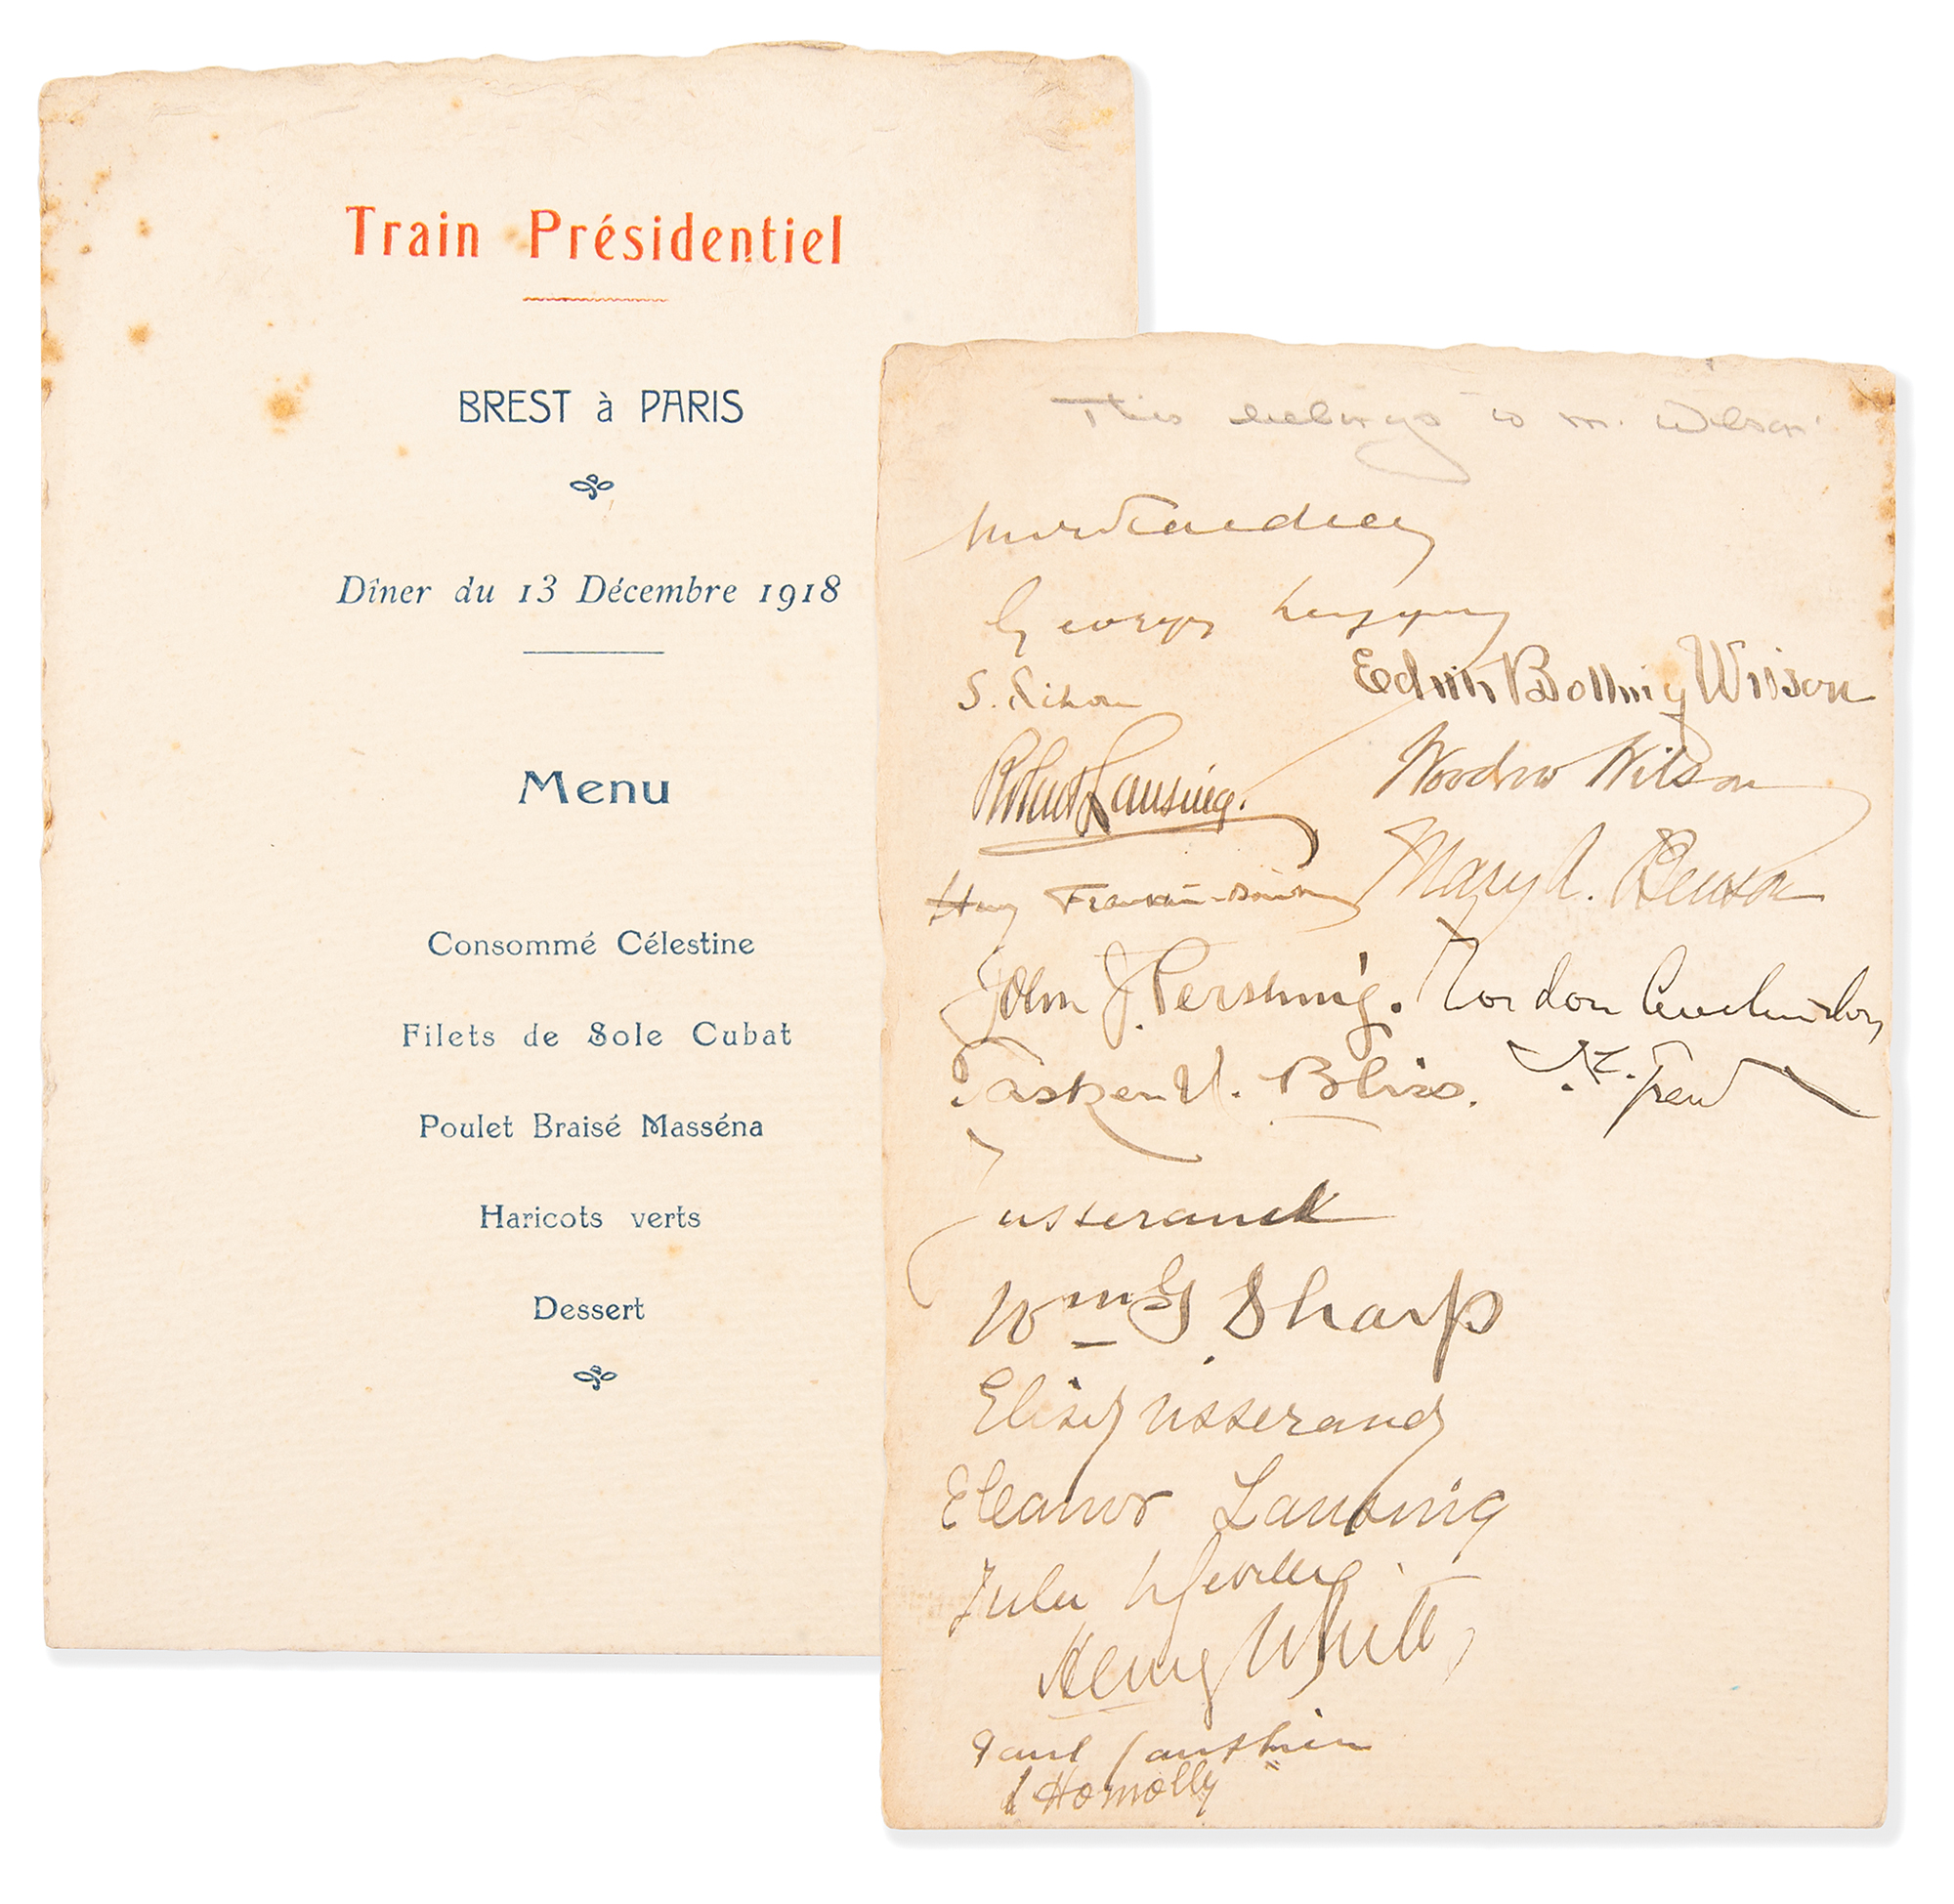 Train Présidentiel
BREST à PARIS
Dîner du 13 Décembre 1918
Menu
Consommé Célestine
Filets de Sole Cubat
Poulet Braisé Masséna
Haricots verts
Dessert
This belongs to Mr. Wilson
Georges Leygues
Edith Bolling Wilson
S. Pichon
Robert Lansing.
Woodrow Wilson
Mary A. Benson
John J. Pershing. Gordon Auchincloss
Tasker H. Bliss.
Jusserand
Wm G Sharp
Elise Jusserand
Eleanor Lansing
Henry White
Homolle